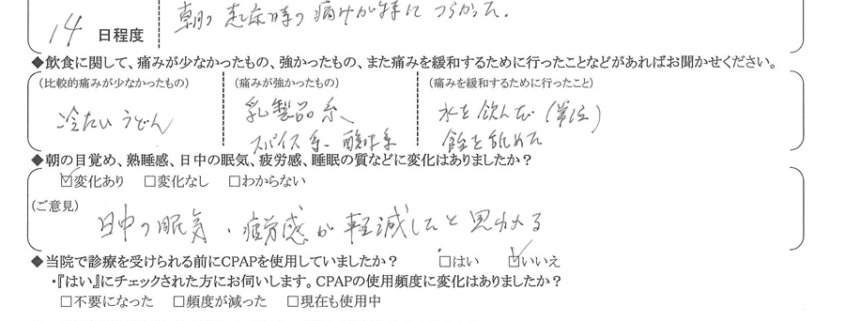 朝の起床時の痛みが特につらかった.
14 日程度
◆飲食に関して、痛みが少なかったもの、強かったもの、また痛みを緩和するために行ったことなどがあればお聞かせください。
(比較的痛みが少なかったもの) (痛みが強かったもの) (痛みを緩和するために行ったこと)
冷たいうどん 乳製品系、 水を飲んだ(常温)
スパイス系、酸味系 飴を舐めた
◆朝の目覚め、熟睡感、日中の眠気、疲労感、睡眠の質などに変化はありましたか?
☑変化あり □変化なし □わからない
(ご意見)
日中の眠気・疲労感が軽減したと思われる
◆当院で診療を受けられる前にCPAPを使用していましたか? □はい ☑いいえ
・『はい』にチェックされた方にお伺いします。CPAPの使用頻度に変化はありましたか?
□不要になった □頻度が減った □現在も使用中